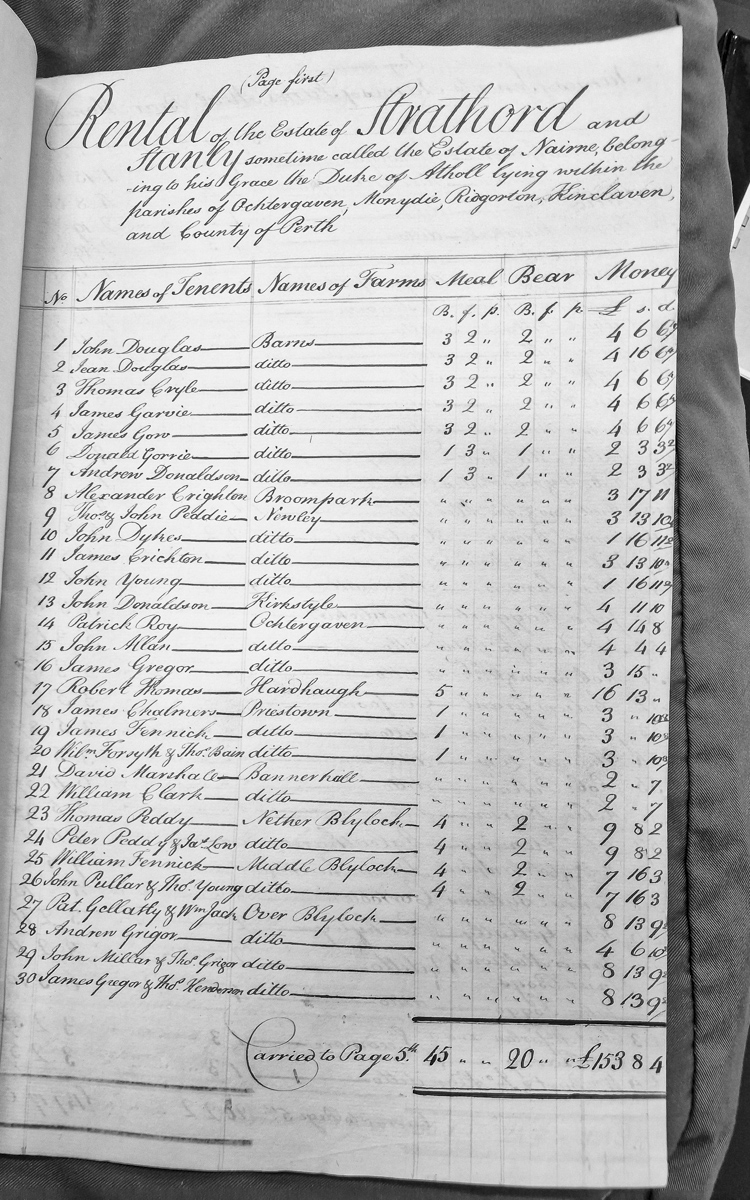 (Page first)
Rental of the Estate of Strathord and
Stanly sometime called the Estate of Nairne, belong-
-ing to his Grace the Duke of Atholl lying within the
parishes of Ochtergaven, Monydie, Ridgorton, Kinclaven,
and County of Perth
No Names of Tenents Names of Farms Meal Bear Money
B. f. p. B. f. p £ s. d.
1 John Douglas Barns 3 2 " 2 " " 4 6 6
2 Jean Douglas ditto 3 2 " 2 " " 4 16 6
3 Thomas Cryle ditto 3 2 " 2 " " 4 6 6
4 James Garvie ditto 3 2 " 2 " " 4 6 6
5 James Gow ditto 3 2 " 2 " " 4 6 6
6 Donald Gorrie ditto 1 3 " 1 " " 2 3 3
7 Andrew Donaldson ditto 1 3 " 1 " " 2 3 3
8 Alexander Crighton Broompark " " " " " " 3 17 11
9 Thos. & John Peddie Newley " " " " " " 3 13 10
10 John Dykes ditto " " " " " " 1 16 11
11 James Crichton ditto " " " " " " 3 13 10
12 John Young ditto " " " " " " 1 16 11
13 John Donaldson Kirkstyle " " " " " " 4 11 10
14 Patrick Roy Ochtergaven " " " " " " 4 14 8
15 John Allan ditto " " " " " " 4 4 4
16 James Gregor ditto " " " " " " 3 15 "
17 Robert Thomas Hardhaugh 5 " " " " " 16 13 "
18 James Chalmers Priestown 1 " " " " " 3 " 10
19 James Fennick ditto 1 " " " " " 3 " 10
20 Wilm. Forsyth & Thos. Bain ditto 1 " " " " " 3 " 10
21 David Marshale Bannerhall " " " " " " 2 " 7
22 William Clark ditto " " " " " " 2 " 7
23 Thomas Peddy Nether Blylock 4 " " 2 " " 9 8 2
24 Peter Peddy & Jas. Low ditto 4 " " 2 " " 9 8 2
25 William Fennick Middle Blylock 4 " " 2 " " 7 16 3
26 John Pullar & Thos. Young ditto 4 " " 2 " " 7 16 3
27 Pat. Gellatly & Wm Jack Over Blylock " " " " " " 8 13 9
28 Andrew Grigor ditto " " " " " " 4 6 10
29 John Millar & Thos. Grigor ditto " " " " " " 8 13 9
30 James Gregor & Thos. Henderson ditto " " " " " " 8 13 9
Carried to Page 5th. 45 " " 20 " " £153 8 4